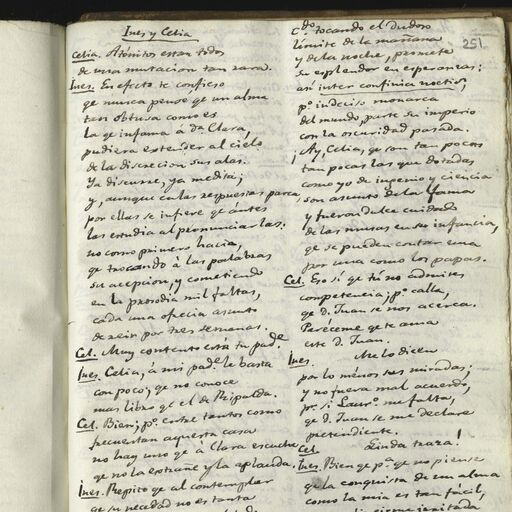 Ines y Celia
Celia. Atónitos estan todos
de una mutacion tan rara.
Ines. En efecto te confieso
qe nunca pensé, qe un alma
tan obtusa como es
la qe infama á da Clara,
pudiera estender al cielo
de la discrecion sus alas.
Ya discurre, ya medita;
y, aunque en las respuestas parca
por ellas se infiere qe ántes
las estudia al pronunciarlas:
no como primero hacia,
qe trocando á las palabras
su acepcion, y cometiendo
en la prosodia mil faltas,
cada una ofrecia asunto
de reir por tres semanas.
Cel. Muy contento está tu pade.
Ines. Celia, á mi pade le basta
con poco; qe no conoce
mas libro qe el de Ripalda.
Cel. Bien; po. entre tantos como
frecuentan aquesta casa
no hay uno qe á Clara escuche
qe no la estrañe y la aplauda.
Ines. Repito qe al contemplar
qe su necedad no es tanta
251.
cdo. tocando el dudoso
límite de la mañana
y de la noche, promete
su esplendor en esperanzas:
asi inter confinia noctis,
po. indeciso monarca
del mundo, parte su imperio
con la oscuridad pasada.
¡Ay, Celia, qe son tan pocos
tan pocas las que dotadas
como yo de ingenio y ciencia
son asunto de la fama
y fueron dulce cuidado
de las musas en su infancia,
qe se pueden contar una
por una como los papas.
Cel. Eso sí qe tú no admites
competencia; po. calla,
qe d. Juan se nos acerca.
Pareceme qe te ama
este d. Juan.
Ines. Me lo dicen
por lo ménos sus miradas;
y no fuera mal acuerdo,
pr. si Laurº. me falta,
qe d. Juan se me declare
pretendiente.
Cel. Linda traza!
Ines. Bien qe pª. qe no piense
qe la conquista de un alma
como la mia es tan fácil,